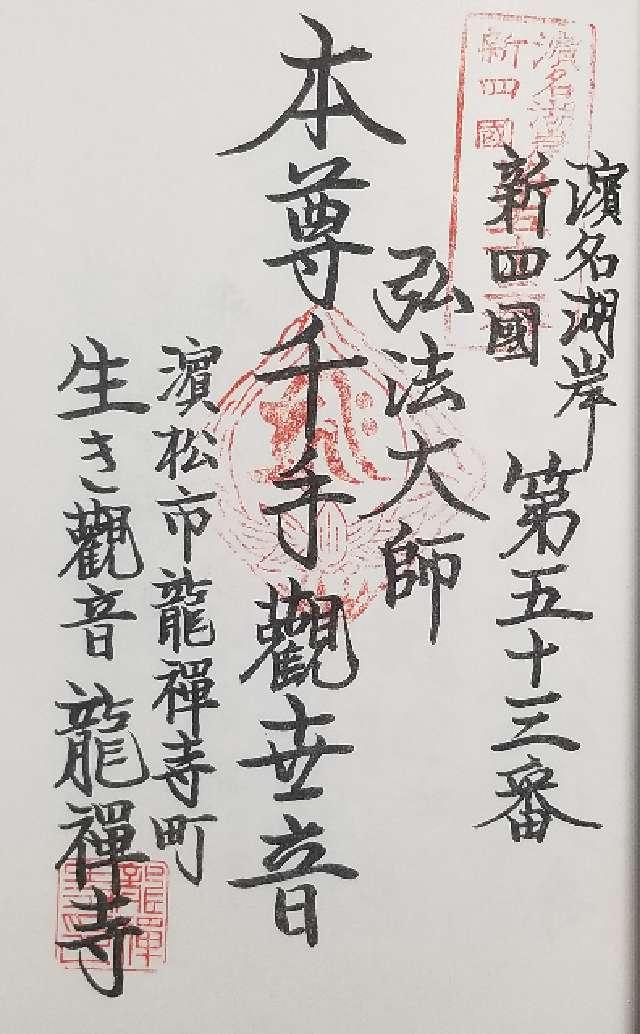 濱名湖岸
新四國
第五十三番
弘法大師
本尊千手觀世音
濱松市龍禪寺町
生き觀音 龍禪寺
濱名湖岸
新四國